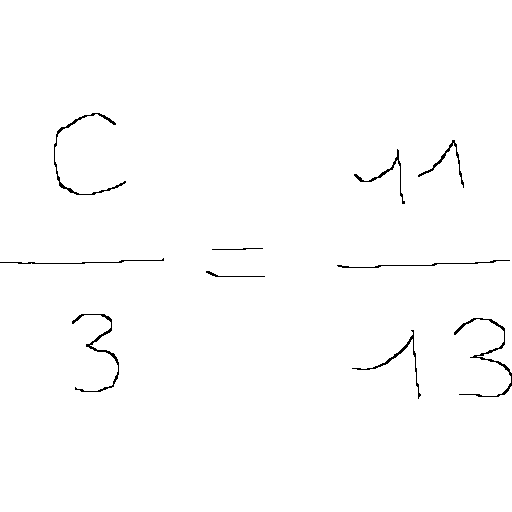 C/3 = 11/13